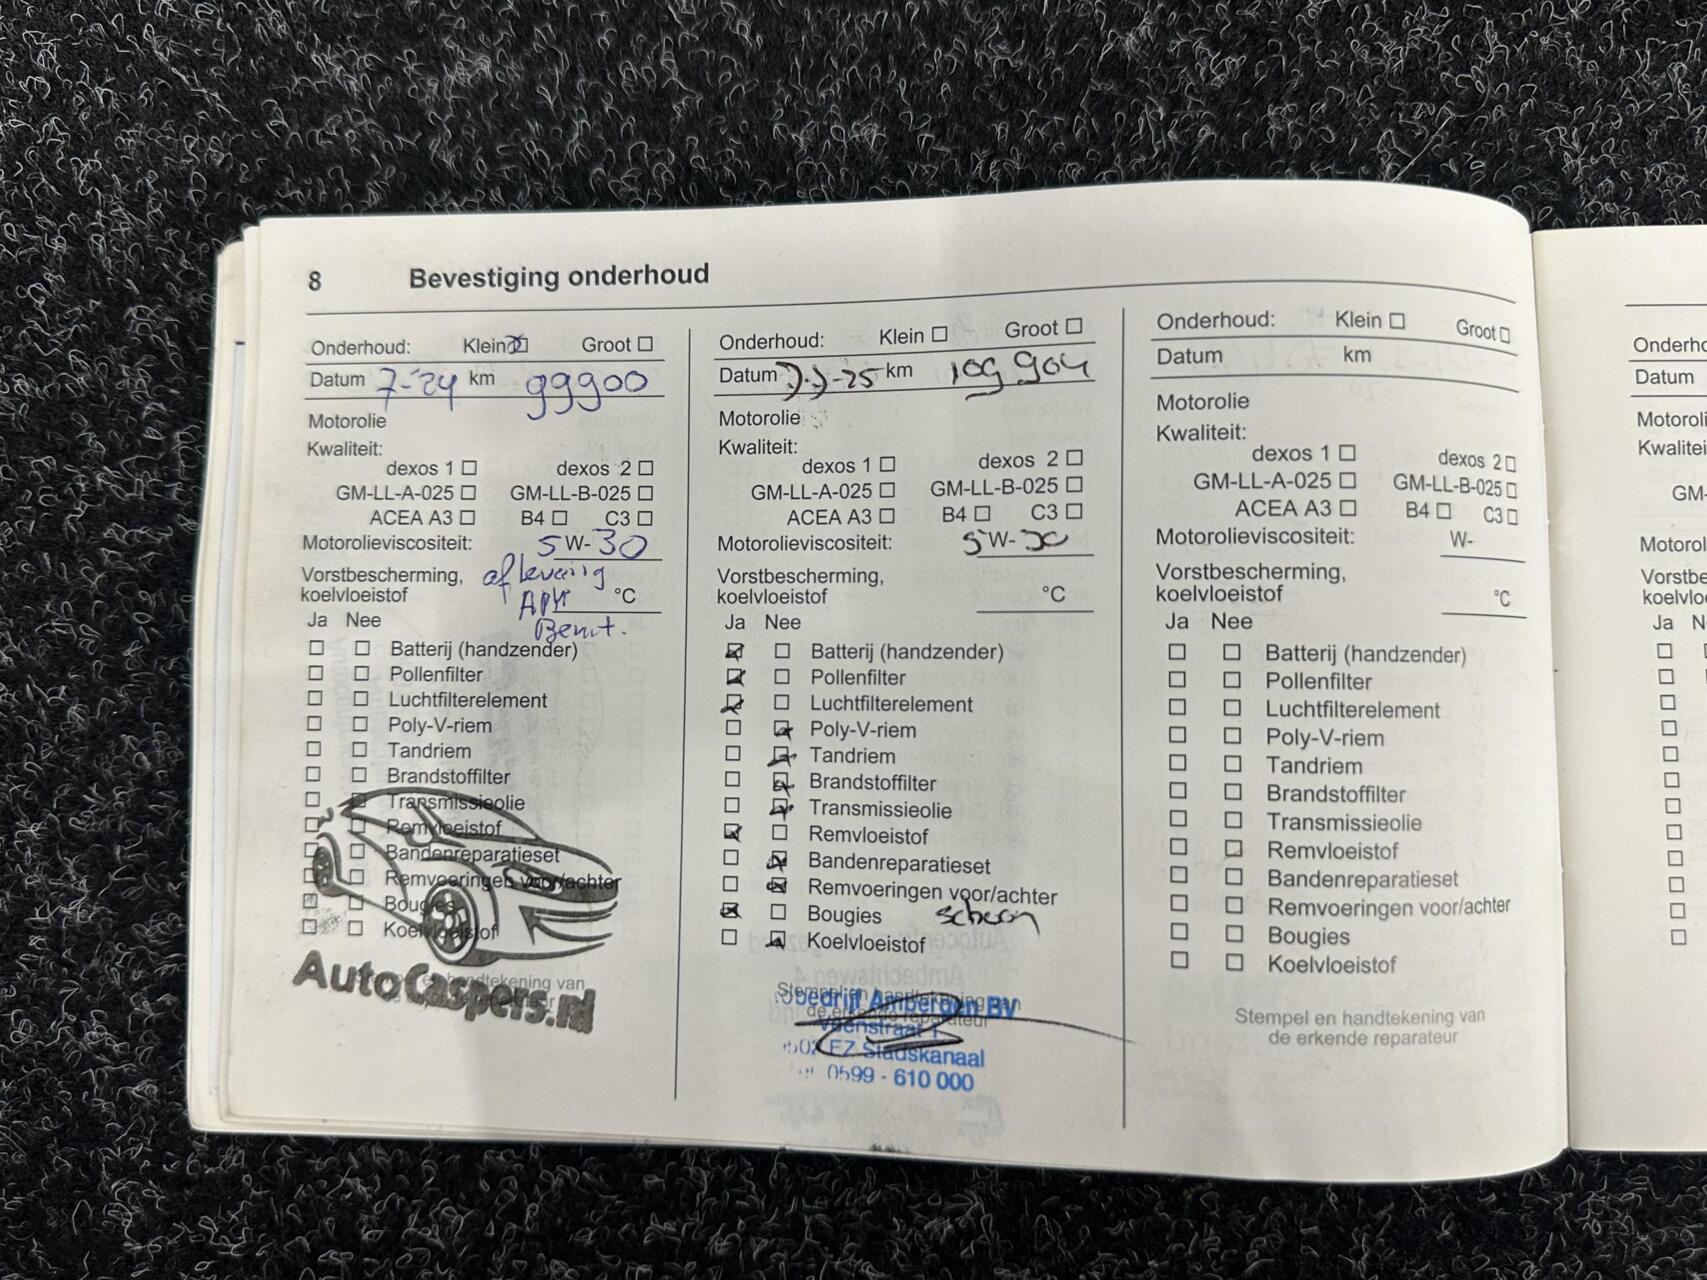 8 Bevestiging onderhoud
Onderhoud: Klein Groot
Datum 7-'24 km 99900
Motorolie
Kwaliteit:
dexos 1 dexos 2
GM-LL-A-025 GM-LL-B-025
ACEA A3 B4 C3
Motorolieviscositeit: 5 W- 30
Vorstbescherming, aflevering
koelvloeistof APK °C
Ja Nee
Batterij (handzender)
Pollenfilter
Luchtfilterelement
Poly-V-riem
Tandriem
Brandstoffilter
Transmissieolie
Remvloeistof
Bandenreparatieset
Remvoeringen voor/achter
Bougies
Koelvloeistof
AutoCaspers.nl
Onderhoud: Klein Groot
Datum 7-7-25 km 109904
Motorolie
Kwaliteit:
dexos 1 dexos 2
GM-LL-A-025 GM-LL-B-025
ACEA A3 B4 C3
Motorolieviscositeit: 5 W- 30
Vorstbescherming,
koelvloeistof °C
Ja Nee
Batterij (handzender)
Pollenfilter
Luchtfilterelement
Poly-V-riem
Tandriem
Brandstoffilter
Transmissieolie
Remvloeistof
Bandenreparatieset
Remvoeringen voor/achter
Bougies schoon
Koelvloeistof
Stempel en handtekening van
de erkende reparateur
Ambergen BV
Veenstraat 1
EZ Stadskanaal
0599 - 610 000
Onderhoud: Klein Groot
Datum km
Motorolie
Kwaliteit:
dexos 1 dexos 2
GM-LL-A-025 GM-LL-B-025
ACEA A3 B4 C3
Motorolieviscositeit: W-
Vorstbescherming,
koelvloeistof °C
Ja Nee
Batterij (handzender)
Pollenfilter
Luchtfilterelement
Poly-V-riem
Tandriem
Brandstoffilter
Transmissieolie
Remvloeistof
Bandenreparatieset
Remvoeringen voor/achter
Bougies
Koelvloeistof
Stempel en handtekening van
de erkende reparateur
Onderho
Datum
Motoroli
Kwalitei
GM-
Motorol
Vorstbe
koelvlo
Ja N